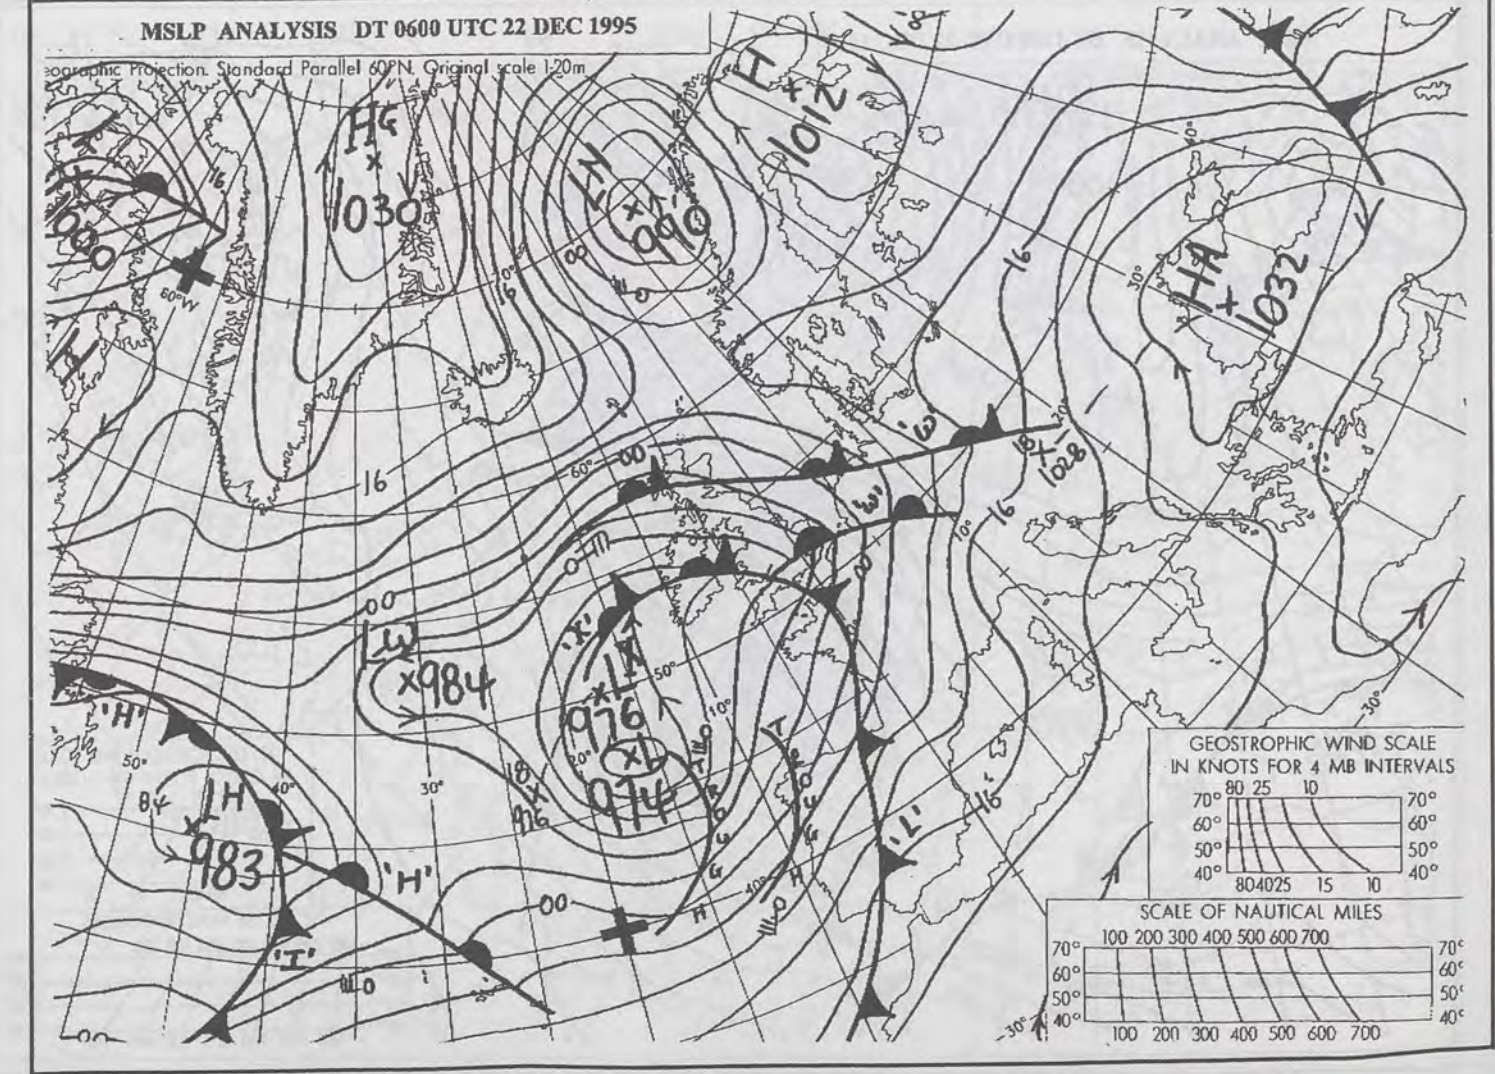 MSLP ANALYSIS DT 0600 UTC 22 DEC 1995
Geographic Projection. Standard Parallel 60°N. Original scale 1:20m
H
1012
HG
1030
16
LN
990
00
1000
60°W
16
16
HA
1032
40°
30°
20°
16
1028
'3'
'3'
16
10°
60°
00
16
00
LW
984
'X'
LX
976
50°
10°
20°
L
974
18
976
TROUGH
TROUGH
'H'
50°
84
LH
983
40°
30°
'H'
'I'
00
40°
'L'
16
00
30°
30°
GEOSTROPHIC WIND SCALE
IN KNOTS FOR 4 MB INTERVALS
80 25 10
70° 70°
60° 60°
50° 50°
40° 40°
80 40 25 15 10
SCALE OF NAUTICAL MILES
100 200 300 400 500 600 700
70° 70°
60° 60°
50° 50°
40° 40°
100 200 300 400 500 600 700